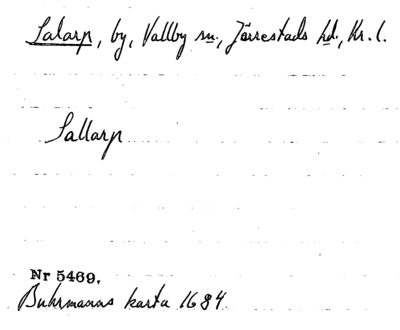 Salarp, by, Vallby sn., Järrestads hd., Kr. l.
Sallarp
Nr 5469.
Buhrmanns karta 1684.